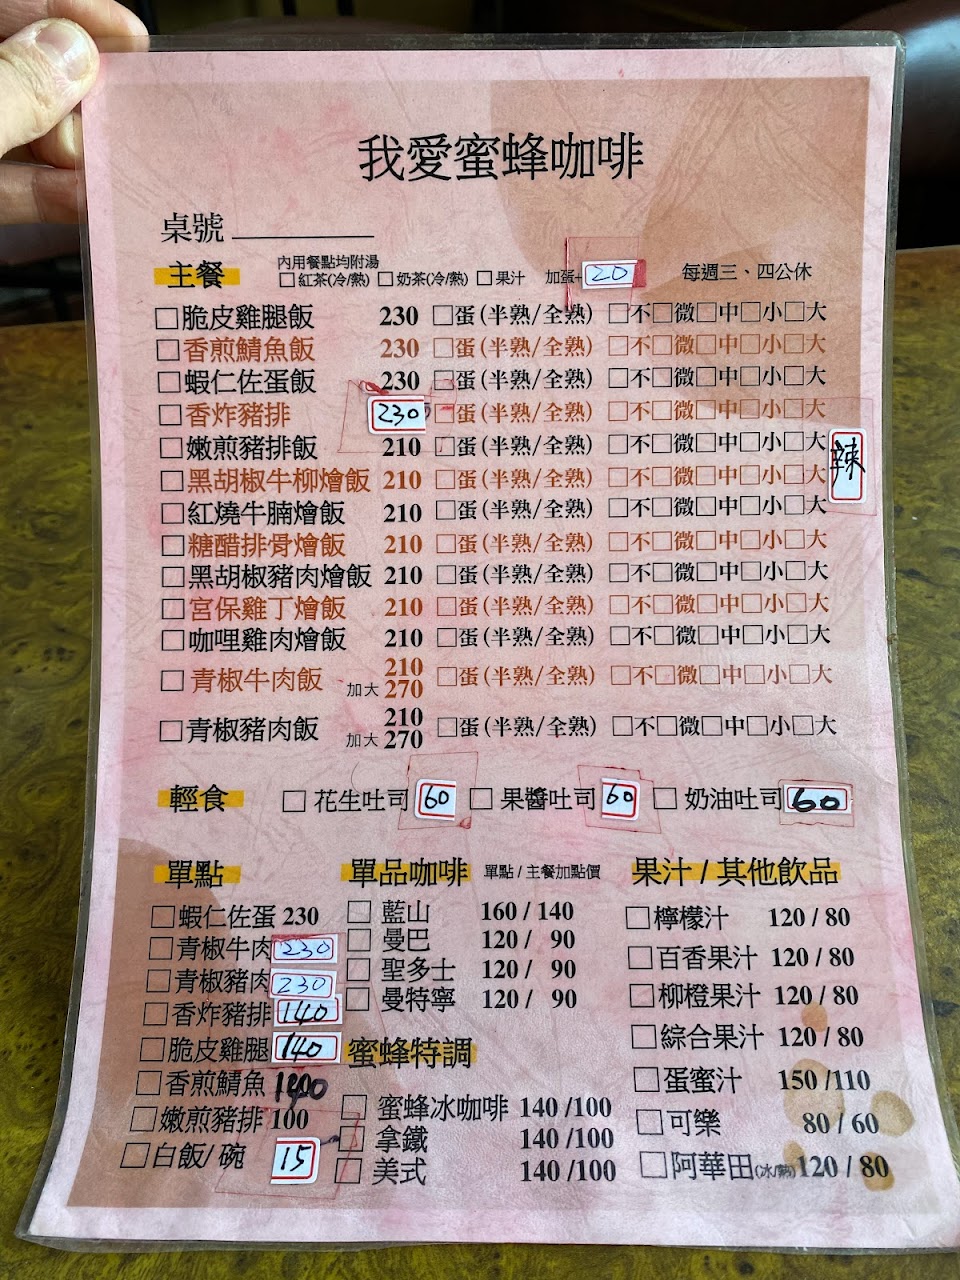 我愛蜜蜂咖啡
桌號
主餐 內用餐點均附湯 □紅茶(冷/熱) □奶茶(冷/熱) □果汁 加蛋 20 每週三、四公休
□脆皮雞腿飯 230 □蛋(半熟/全熟) □不□微□中□小□大
□香煎鯖魚飯 230 □蛋(半熟/全熟) □不□微□中□小□大
□蝦仁佐蛋飯 230 □蛋(半熟/全熟) □不□微□中□小□大
□香炸豬排 230 □蛋(半熟/全熟) □不□微□中□小□大
□嫩煎豬排飯 210 □蛋(半熟/全熟) □不□微□中□小□大
辣
□黑胡椒牛柳燴飯 210 □蛋(半熟/全熟) □不□微□中□小□大
□紅燒牛腩燴飯 210 □蛋(半熟/全熟) □不□微□中□小□大
□糖醋排骨燴飯 210 □蛋(半熟/全熟) □不□微□中□小□大
□黑胡椒豬肉燴飯 210 □蛋(半熟/全熟) □不□微□中□小□大
□宮保雞丁燴飯 210 □蛋(半熟/全熟) □不□微□中□小□大
□咖哩雞肉燴飯 210 □蛋(半熟/全熟) □不□微□中□小□大
□青椒牛肉飯 210 □蛋(半熟/全熟) □不□微□中□小□大
加大 270
□青椒豬肉飯 210 □蛋(半熟/全熟) □不□微□中□小□大
加大 270
輕食 □花生吐司 60 □果醬吐司 60 □奶油吐司 60
單點
□蝦仁佐蛋 230
□青椒牛肉 230
□青椒豬肉 230
□香炸豬排 140
□脆皮雞腿 140
□香煎鯖魚 140
□嫩煎豬排 100
□白飯/碗 15
單品咖啡 單點/主餐加點價
□藍山 160/140
□曼巴 120/ 90
□聖多士 120/ 90
□曼特寧 120/ 90
蜜蜂特調
□蜜蜂冰咖啡 140/100
□拿鐵 140/100
□美式 140/100
果汁/其他飲品
□檸檬汁 120/80
□百香果汁 120/80
□柳橙果汁 120/80
□綜合果汁 120/80
□蛋蜜汁 150/110
□可樂 80/60
□阿華田(冰/熱) 120/80